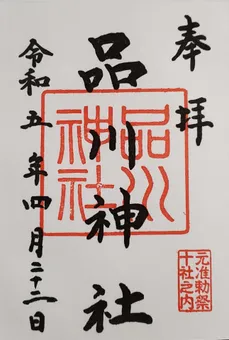 奉拝
品川神社
令和五年四月二十二日
品川神社
元准勅祭
十社之内